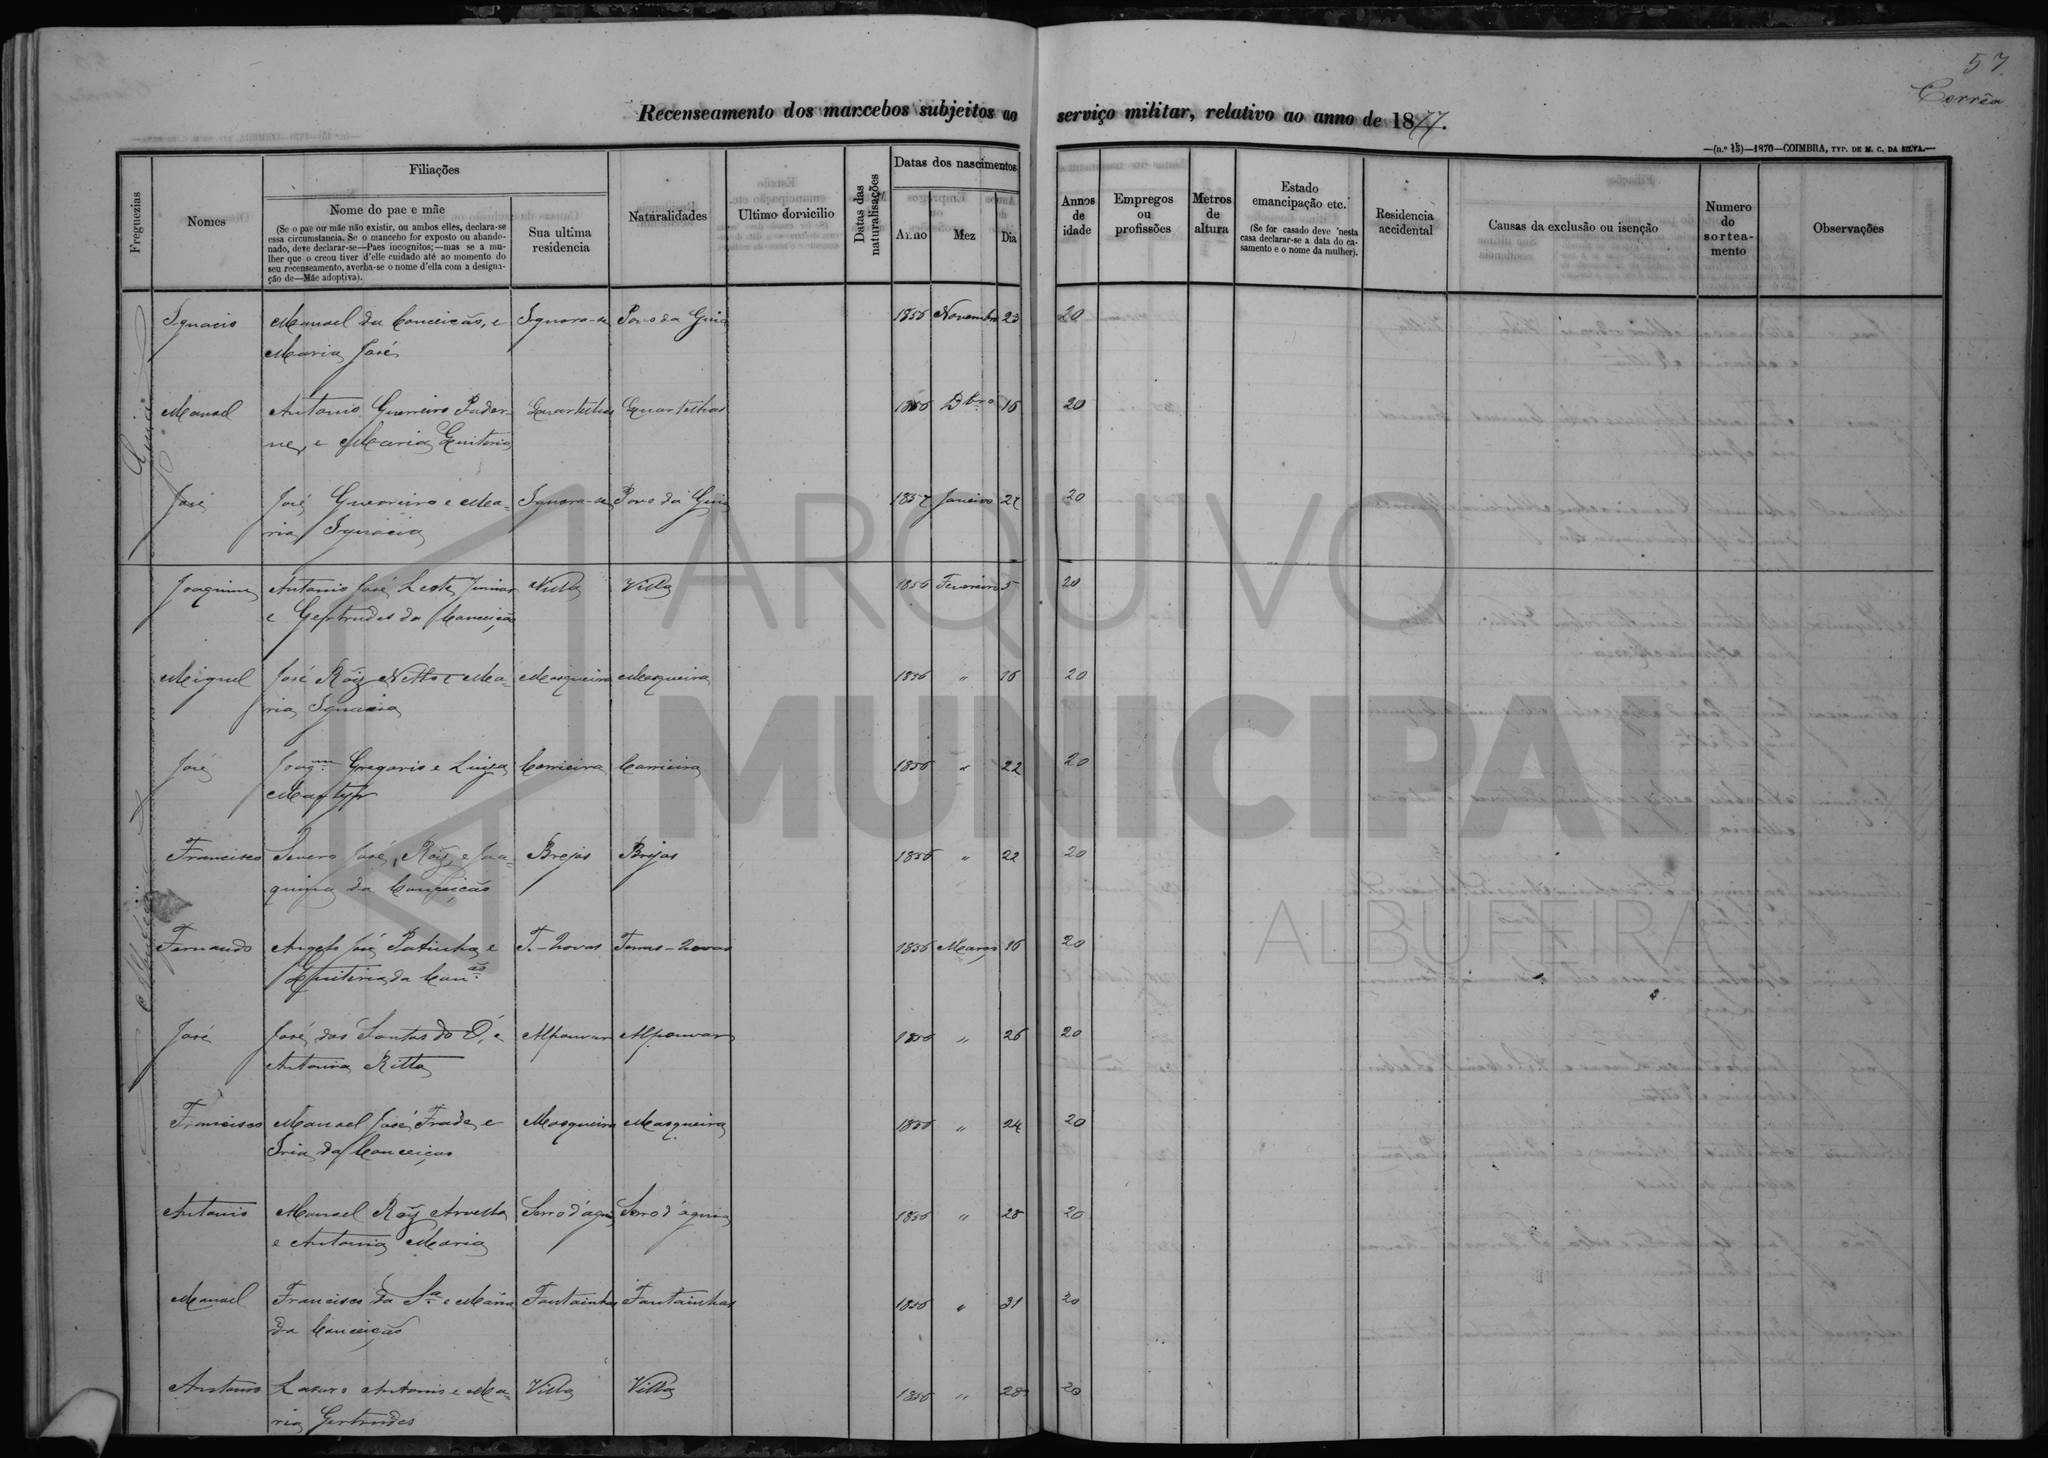 57
Corrêa
Recenseamento dos mancebos subjeitos ao serviço militar, relativo ao anno de 1877.
—(n.º 15)—1870—COIMBRA, TYP. DE M. C. DA SILVA.—
Freguezias
Nomes
Filiações
Nome do pae e mãe
(Se o pae ou mãe não existir, ou ambos elles, declara-se
essa circumstancia. Se o mancebo for exposto ou abando-
nado, deve declarar-se—Paes incognitos;—mas se a mu-
lher que o creou tiver d'elle cuidado até ao momento do
seu recenseamento, averba-se o nome d'ella com a designa-
ção de—Mãe adoptiva).
Sua ultima
residencia
Naturalidades
Ultimo domicilio
Datas das
naturalisações
Datas dos nascimentos
Anno
Mez
Dia
Annos
de
idade
Empregos
ou
profissões
Metros
de
altura
Estado
emancipação etc.
(Se for casado deve 'nesta
casa declarar-se a data do ca-
samento e o nome da mulher).
Residencia
accidental
Causas da exclusão ou isenção
Numero
do
sortea-
mento
Observações
Guia
Ignacio Manoel da Conceição, e Ignora-se Povo da Guia 1856 Novembro 23 20
Maria José
Manoel Antonio Guerreiro Pader- Quartelhas Quartelhas 1856 Dbro 16 20
ne, e Maria Quiteria
José José Guerreiro e Ma- Ignora-se Povo da Guia 1857 Janeiro 27 20
ria Ignacia
Joaquim Antonio José Leote Junior Villa Villa 1856 Fevereiro 5 20
e Gertrudes da Conceição
Miguel José Roiz Netto e Ma- Mosqueira Mosqueira 1856 " 16 20
ria Ignacia
José Joaqm Gregorio e Luiza Correeira Correeira 1856 " 22 20
Martyr
Francisco Severo José Roiz, e Joa- Brejos Brejos 1856 " 22 20
quina da Conceição
Fernando Angelo José Patinha e T.-Novas Terras-Novas 1856 Março 16 20
Quiteria da Conção
José José dos Santos do Ó, e Alpouvar Alpouvar 1856 " 26 20
Antonia Ritta
Francisco Manoel José Frade, e Mosqueira Mosqueira 1856 " 24 20
Iria da Conceição
Antonio Manoel Roiz Arvella Serro d'aguia Serro d'aguia 1856 " 28 20
e Antonia Maria
Manoel Francisco da Sa e Maria Fontainhas Fontainhas 1856 " 31 20
da Conceição
Antonio Lazaro Antonio e Ma- Villa Villa 1856 " 28 20
ria Gertrudes
ARQUIVO
MUNICIPAL
ALBUFEIRA